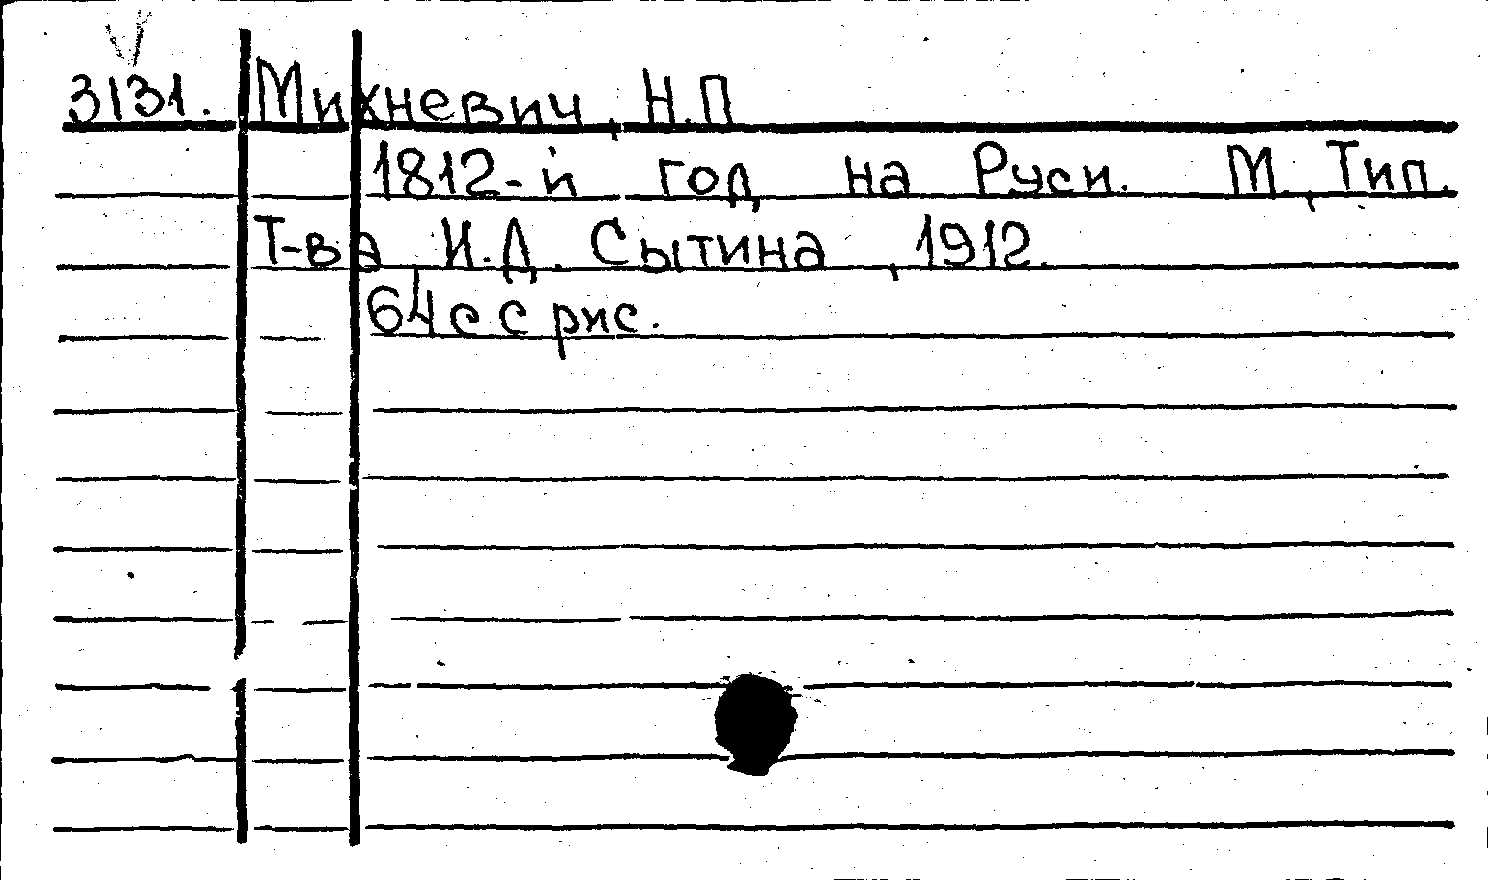 3131. Михневич, Н.П
1812-й год на Руси. М., Тип.
Т-ва И.Д. Сытина, 1912.
64 с с рис.